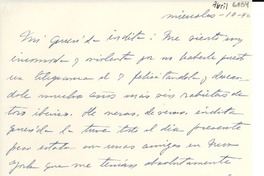 miércoles - 10 - 
Mi querida indita: Me siento muy
incomoda y violenta por no haberle puesto
un telegrama el 7 felicitandola y desean
dole muchos años más sus rabietas de
toro ibérico. De veras, de veras, indita
querida la tuve todo el día presente
pero estaba con unas amigas en Nueva
York que me tenían absolutamente